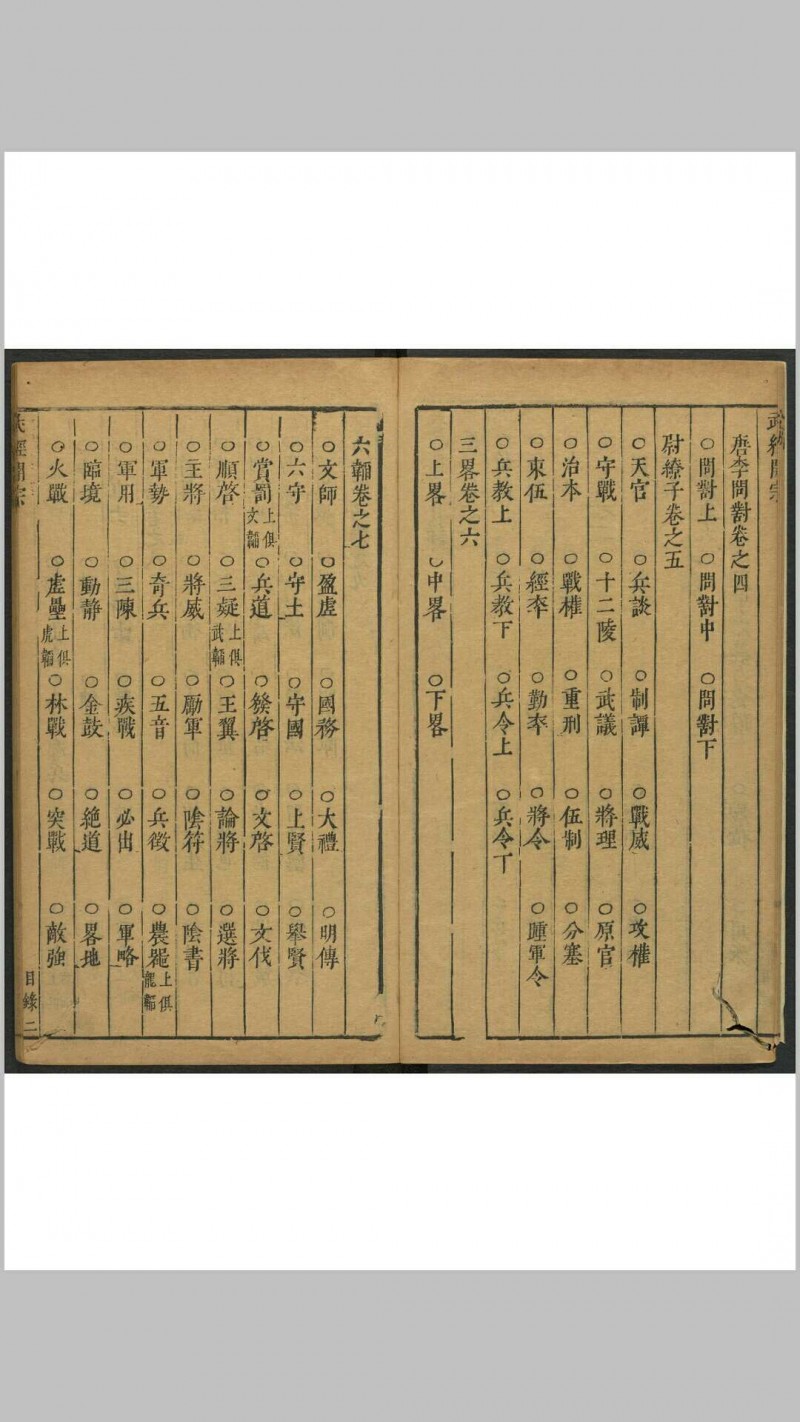 武經開宗
唐李問對卷之四
○問對上 ○問對中 ○問對下
尉繚子卷之五
○天官 ○兵談 ○制譚 ○戰威 ○攻權
○守戰 ○十二陵 ○武議 ○將理 ○原官
○治本 ○戰權 ○重刑 ○伍制 ○分塞
○束伍 ○經卒 ○勤卒 ○將令 ○踵軍令
○兵教上 ○兵教下 ○兵令上 ○兵令下
三畧卷之六
○上畧 ○中畧 ○下畧
六韜卷之七
○文師 ○盈虛 ○國務 ○大禮 ○明傳
○六守 ○守土 ○守國 ○上賢 ○舉賢
○賞罰 上俱文韜 ○兵道 ○發啓 ○文啓 ○文伐
○順啓 ○三疑 上俱武韜 ○王翼 ○論將 ○選將
○主將 ○將威 ○勵軍 ○陰符 ○陰書
○軍勢 ○奇兵 ○五音 ○兵徵 ○農器 上俱龍韜
○軍用 ○三陳 ○疾戰 ○必出 ○軍略
○臨境 ○動靜 ○金鼓 ○絕道 ○畧地
○火戰 ○虛壘 上俱虎韜 ○林戰 ○突戰 ○敵強
武經開宗 目錄 二